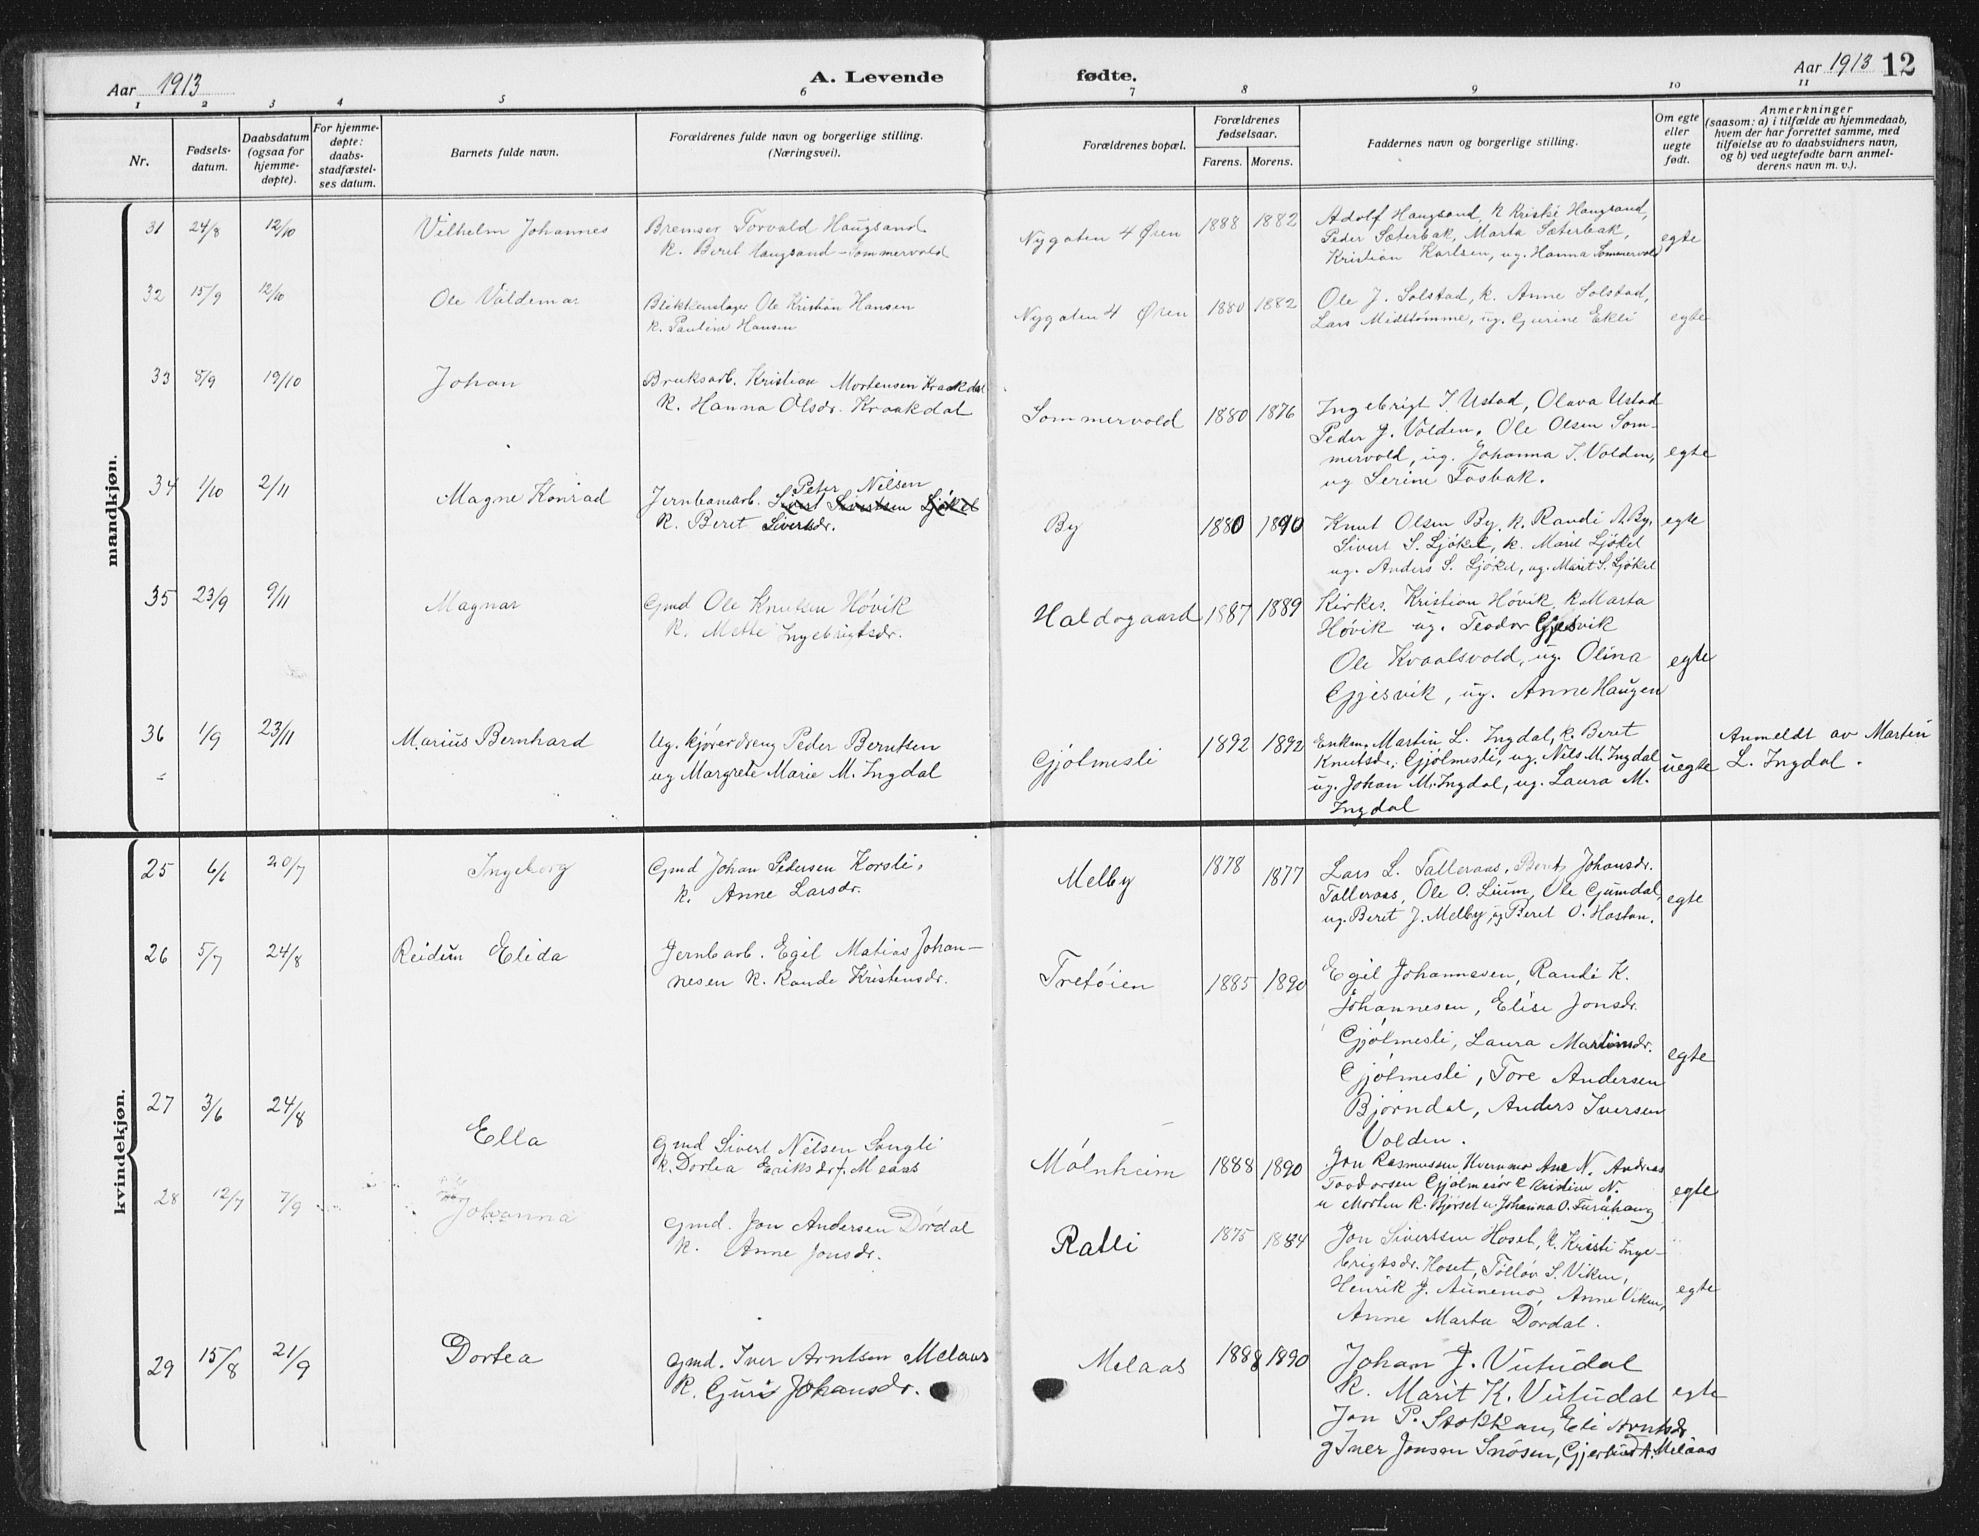 Aar 1913
A. Levende
fødte.
Aar 1913 12
1 2 3 4 5 6 7 8 9 10 11
Nr.
Fødsels-
datum.
Daabsdatum
(ogsaa for
hjemme-
døpte).
For hjemme-
døpte:
daabs-
stadfæstel-
ses datum.
Barnets fulde navn.
Forældrenes fulde navn og borgerlige stilling.
(Næringsvei).
Forældrenes bopæl.
Forældrenes
fødselsaar.
Farens. Morens.
Faddernes navn og borgerlige stilling.
Om egte
eller
uegte
født.
Anmerkninger
(saasom: a) i tilfælde av hjemmedaab,
hvem der har forrettet samme, med
tilføielse av to daabsvidners navn,
og b) ved uegtefødte barn anmel-
derens navn m. v.).
mandkjøn.
31 24/8 12/10 Vilhelm Johannes
Bremser Torvald Haugsand
k. Beret Haugsand-Sommervold
Nygaten 4 Øren 1888 1882
Adolf Haugsand, k Haugsand,
Peder Sæterbak, Marta Sæterbak,
Kristian Karlsen, ug. Hanna Sommervold
egte
32 15/9 12/10 Ole Valdemar
Blikkenslager Ole Kristian Hansen
k. Pauline Hansen
Nygaten 4 Øren 1880 1882
Ole J. Solstad, k. Anne Solstad,
Lars Midtømme, ug. Gurine Ekli
egte
33 8/9 19/10 Johan
Bruksarb. Kristian Mortensen Kraakdal
k. Hanna Olsdr. Kraakdal
Sommervold 1880 1876
Ingebrigt I. Ustad, Olava Ustad
Peder J. Volden, Ole Olsen Som-
mervold, ug. Johanna I. Volden,
ug Serine Fosbak.
egte
34 1/10 2/11 Magne Konrad
Peter Nilsen
Jernbanearb. Sivert Sivertsen Ljøkel
k. Beret Sivertsdr.
By 1880 1890
Knut Olsen By, k. Randi A. By,
Sivert S. Ljøkel, k. Marit Ljøkel
ug. Anders S. Ljøkel, ug. Marit S. Ljøkel
egte
35 23/9 9/11 Magnar
Gmd Ole Knutsen Høvik
k. Mette Ingebrigtsdr.
Haldogaard 1887 1889
Kirkes. Kristian Høvik, k Marta
Høvik ug. Teodor Gjesvik
Ole Kvaalsvold, ug. Olina
Gjesvik, ug. Anne Haugen
egte
36 1/9 23/11 Marius Bernhard
Ug. kjøredreng Peder Berntsen
ug Margrete Marie M. Ingdal
Gjølmesli 1892 1892
Enkm. Martin L. Ingdal, k. Beret
Knutsdr. Gjølmesli, ug. Nils M. Ingdal
ug. Johan M. Ingdal, ug. Laura M.
Ingdal
uegte
Anmeldt av Martin
L. Ingdal.
kvindekjøn.
25 6/6 20/7 Ingeborg
Gmd Johan Pedersen Korsli,
k. Anne Larsdr.
Melby 1878 1877
Lars L. Talleraas, Beret Johansdr.
Talleraas, Ole O. Lium, Ole Gumdal,
ug. Beret J. Melby, ug Beret O. Hostan.
egte
26 5/7 24/8 Reidun Elida
Jernb arb. Egil Matias Johan-
nesen k. Rande Kristensdr.
Tretøien 1885 1890
Egil Johannesen, Randi K.
Johannesen, Elise Jonsdr.
Gjølmesli, Laura Martinsdr.
Gjølmesli, Tore Andersen
Bjørndal, Anders Iversen
Volden.
egte
27 3/6 24/8 Ella
Gmd Sivert Nilsen Songli
k. Dortea Eriksdr f. Meaas
Mølnheim 1888 1890
Jon Rasmussen Kvernmo Ane N. Andreas
Teodorsen Gjølmesør Kristine N.
u Morten R. Bjørset u. Johanna O. Furuhaug
egte
28 12/7 7/9 Johanna
Gmd. Jon Andersen Dørdal
k. Anne Jonsdr.
Ratli 1875 1884
Jon Sivertsen Hoset, k. Kristi Inge-
brigtsdr. Hoset, Tølløv S. Viken,
Henrik J. Aunemo, Anne Viken,
Anne Marta Dørdal.
egte
29 15/8 21/9 Dortea
Gmd. Iver Arntsen Melaas
k. Guri Johansdr.
Melaas 1888 1890
Johan J. Vutudal
k. Marit K. Vutudal
Jon P. Stokkan, Eli Arntsdr
g Iver Jonsen Snøsen, Gjertrud A. Melaas
egte